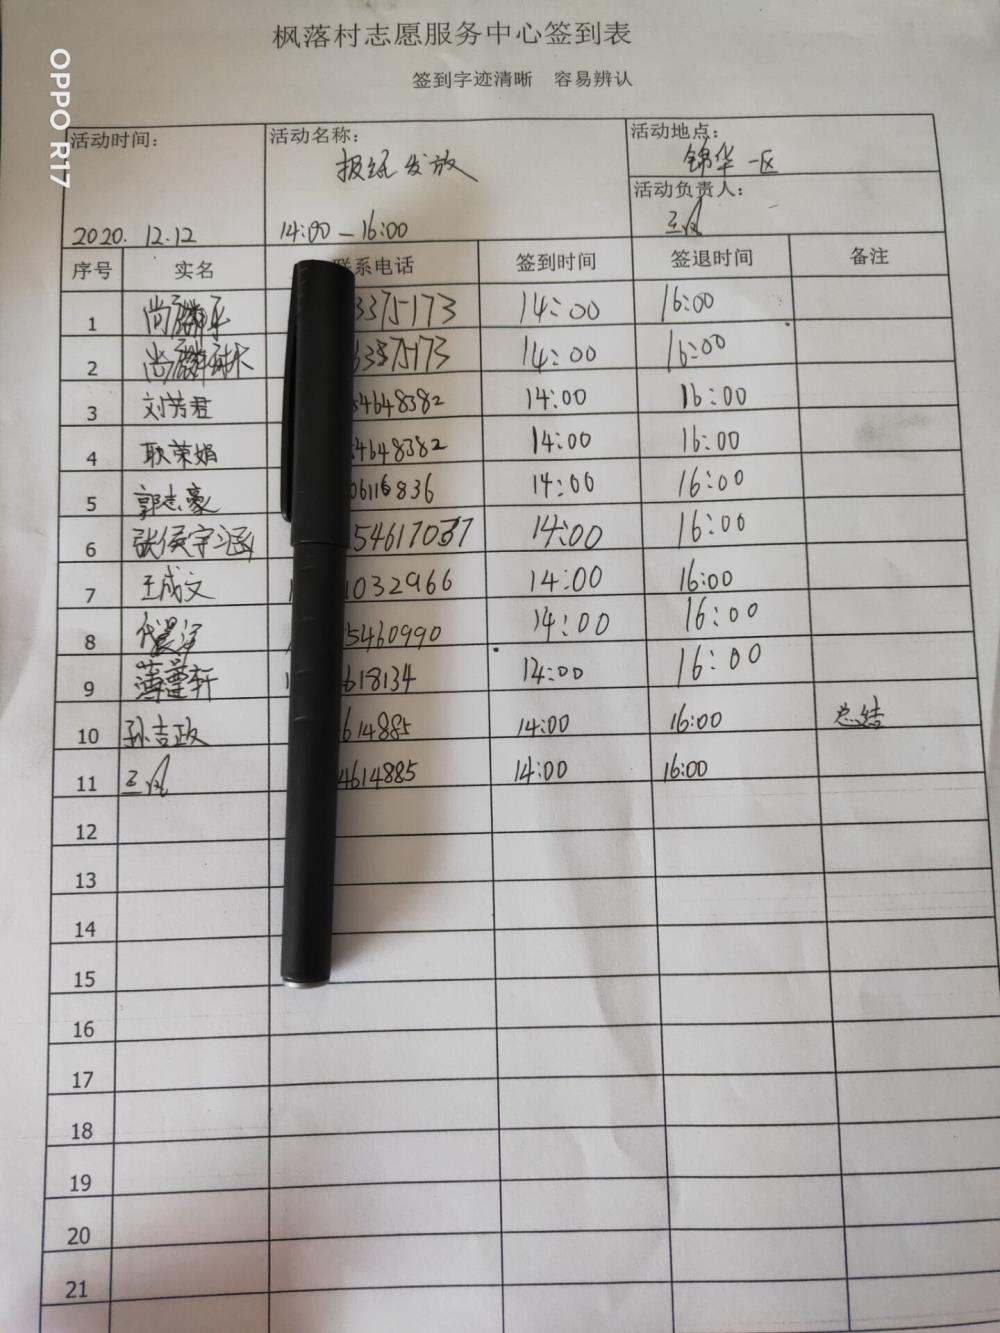 枫落村志愿服务中心签到表
签到字迹清晰 容易辨认
OPPO R17
活动时间： 活动名称： 活动地点：
报纸发放 锦华一区
活动负责人：
2020. 12.12 14:00—16:00 王凤
序号 实名 联系电话 签到时间 签退时间 备注
1 尚 3375173 14:00 16:00
2 尚 14:00 16:00
3 刘芳君 4648382 14:00 16:00
4 耿荣娟 4648382 14:00 16:00
5 郭志豪 06116836 14:00 16:00
6 张侯宇涵 54617037 14:00 16:00
7 王成文 1032966 14:00 16:00
8 5460990 14:00 16:00
9 轩 618134 14:00 16:00
10 孙吉政 614885 14:00 16:00 总结
11 王凤 4614885 14:00 16:00
12
13
14
15
16
17
18
19
20
21